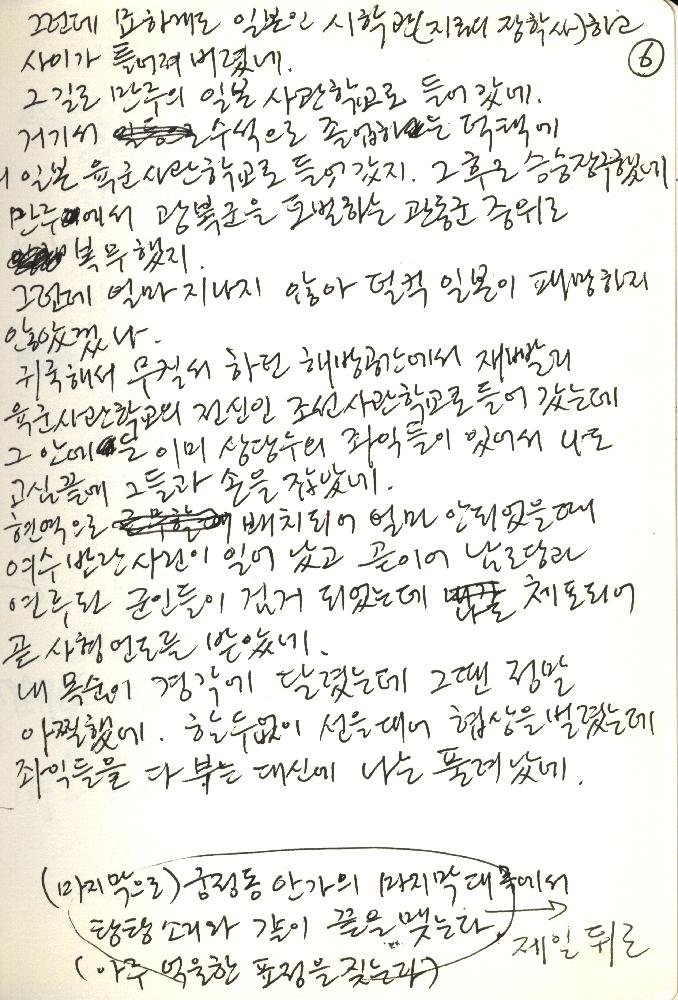 그런데 묘하게도 일본인 시학관(지금의 장학사)하고
⑥
사이가 틀어져 버렸네.
그길로 만주의 일본 사관학교로 들어 갔네.
거기서 수석으로 졸업하는 덕택에
일본 육군사관학교로 들어갔지. 그후로 승승장구했네
만주에서 광복군을 토벌하는 관동군 중위로
복무했지.
그런데 얼마 지나지 않아 덜컥 일본이 패망하지
않았겠나.
귀국해서 무질서 하던 해방공간에서 재빨리
육군사관학교의 전신인 조선사관학교로 들어 갔는데
그 안에는 이미 상당수의 좌익들이 있어서 나도
고심끝에 그들과 손을 잡았네.
현역으로 배치되어 얼마 안되었을때
여수 반란사건이 일어 났고 곧이어 남로당과
연루된 군인들이 검거 되었는데 체포되어
곧 사형언도를 받았네.
내 목숨이 경각에 달렸는데 그땐 정말
아찔했네. 할수없이 선을대어 협상을 벌렸는데
좌익들을 다 부는 대신에 나는 풀려났네.
(마지막으로) 궁정동 안가의 마지막 대목에서
탕탕 소리와 같이 끝을 맺는다. → 제일 뒤로
(아주 억울한 표정을 짓는다)